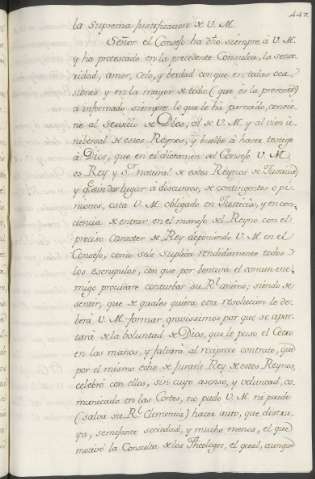 442
la Suprema justificacion de V. M.
Señor el Consejo ha dho siempre à V. M.
y ha protestado en la precedente Consulta, la sente
ridad, amor, Celo, y verdad con que en todas oca
siones y en la mayor de todas (que es la presente)
à informado siempre lo que le há parecido, convie
ne al servicio de Dios, al de V. M. y al vien u
niversal de estos Reynos, y buelbe à hacer testigo
à Dios, que en el dictamen del Consejo V. M.
es Rey y Sr. natural de estos Reynos de Justicia
y sin dar lugar à discursos, de contingentes opi
niones, está V. M. obligado en Justicia, y en con
ciencia de entrar en el manejo del Reyno con el
preciso Caracter de Rey deponiendo V. M. en el
Consejo, como este Suplica rendidamente todos
los escrupulos, con que por ventura el comun ene
migo procurare conturbar su Rl. animo; siendo de
sentir, que de qualesquiera otra resolucion le de
berá V. M. formar gravissimos por que se apar
tará de la voluntad de Dios, que le puso el Cetro
en las manos, y faltará al reciproco contrato, que
por el mismo echo de jurarle Rey de estos Reynos,
celebró con ellos, sin cuyo asenso, y voluntad, co
municada en las Cortes, no pudo V. M. ni puede
(salva su Rl. Clemencia) hacer auto, que destru
ya, semejante sociedad, y mucho menos, el que
motivó la Consulta de los Theologos, el qual, aunque